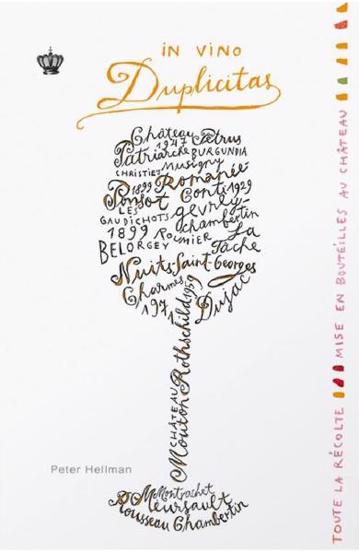 IN VINO
Duplicitas
Château Petrus
1947
Patriarche BURGUNDIA
CHRISTIES Musigny
1899 Romanée
Ponsot Conti 1929
LES gevrey
GAUDICHOTS chambertin
1899 ROUMIER La
BELORGEY Tâche
Nuits-Saint-Georges
Charmes 1959
1971 Dujac
CHÂTEAU
Mouton Rothschild
Montrachet
Meursault
Rousseau Chambertin
Peter Hellman
TOUTE LA RÉCOLTE MISE EN BOUTÉILLES AU CHÂTEAU